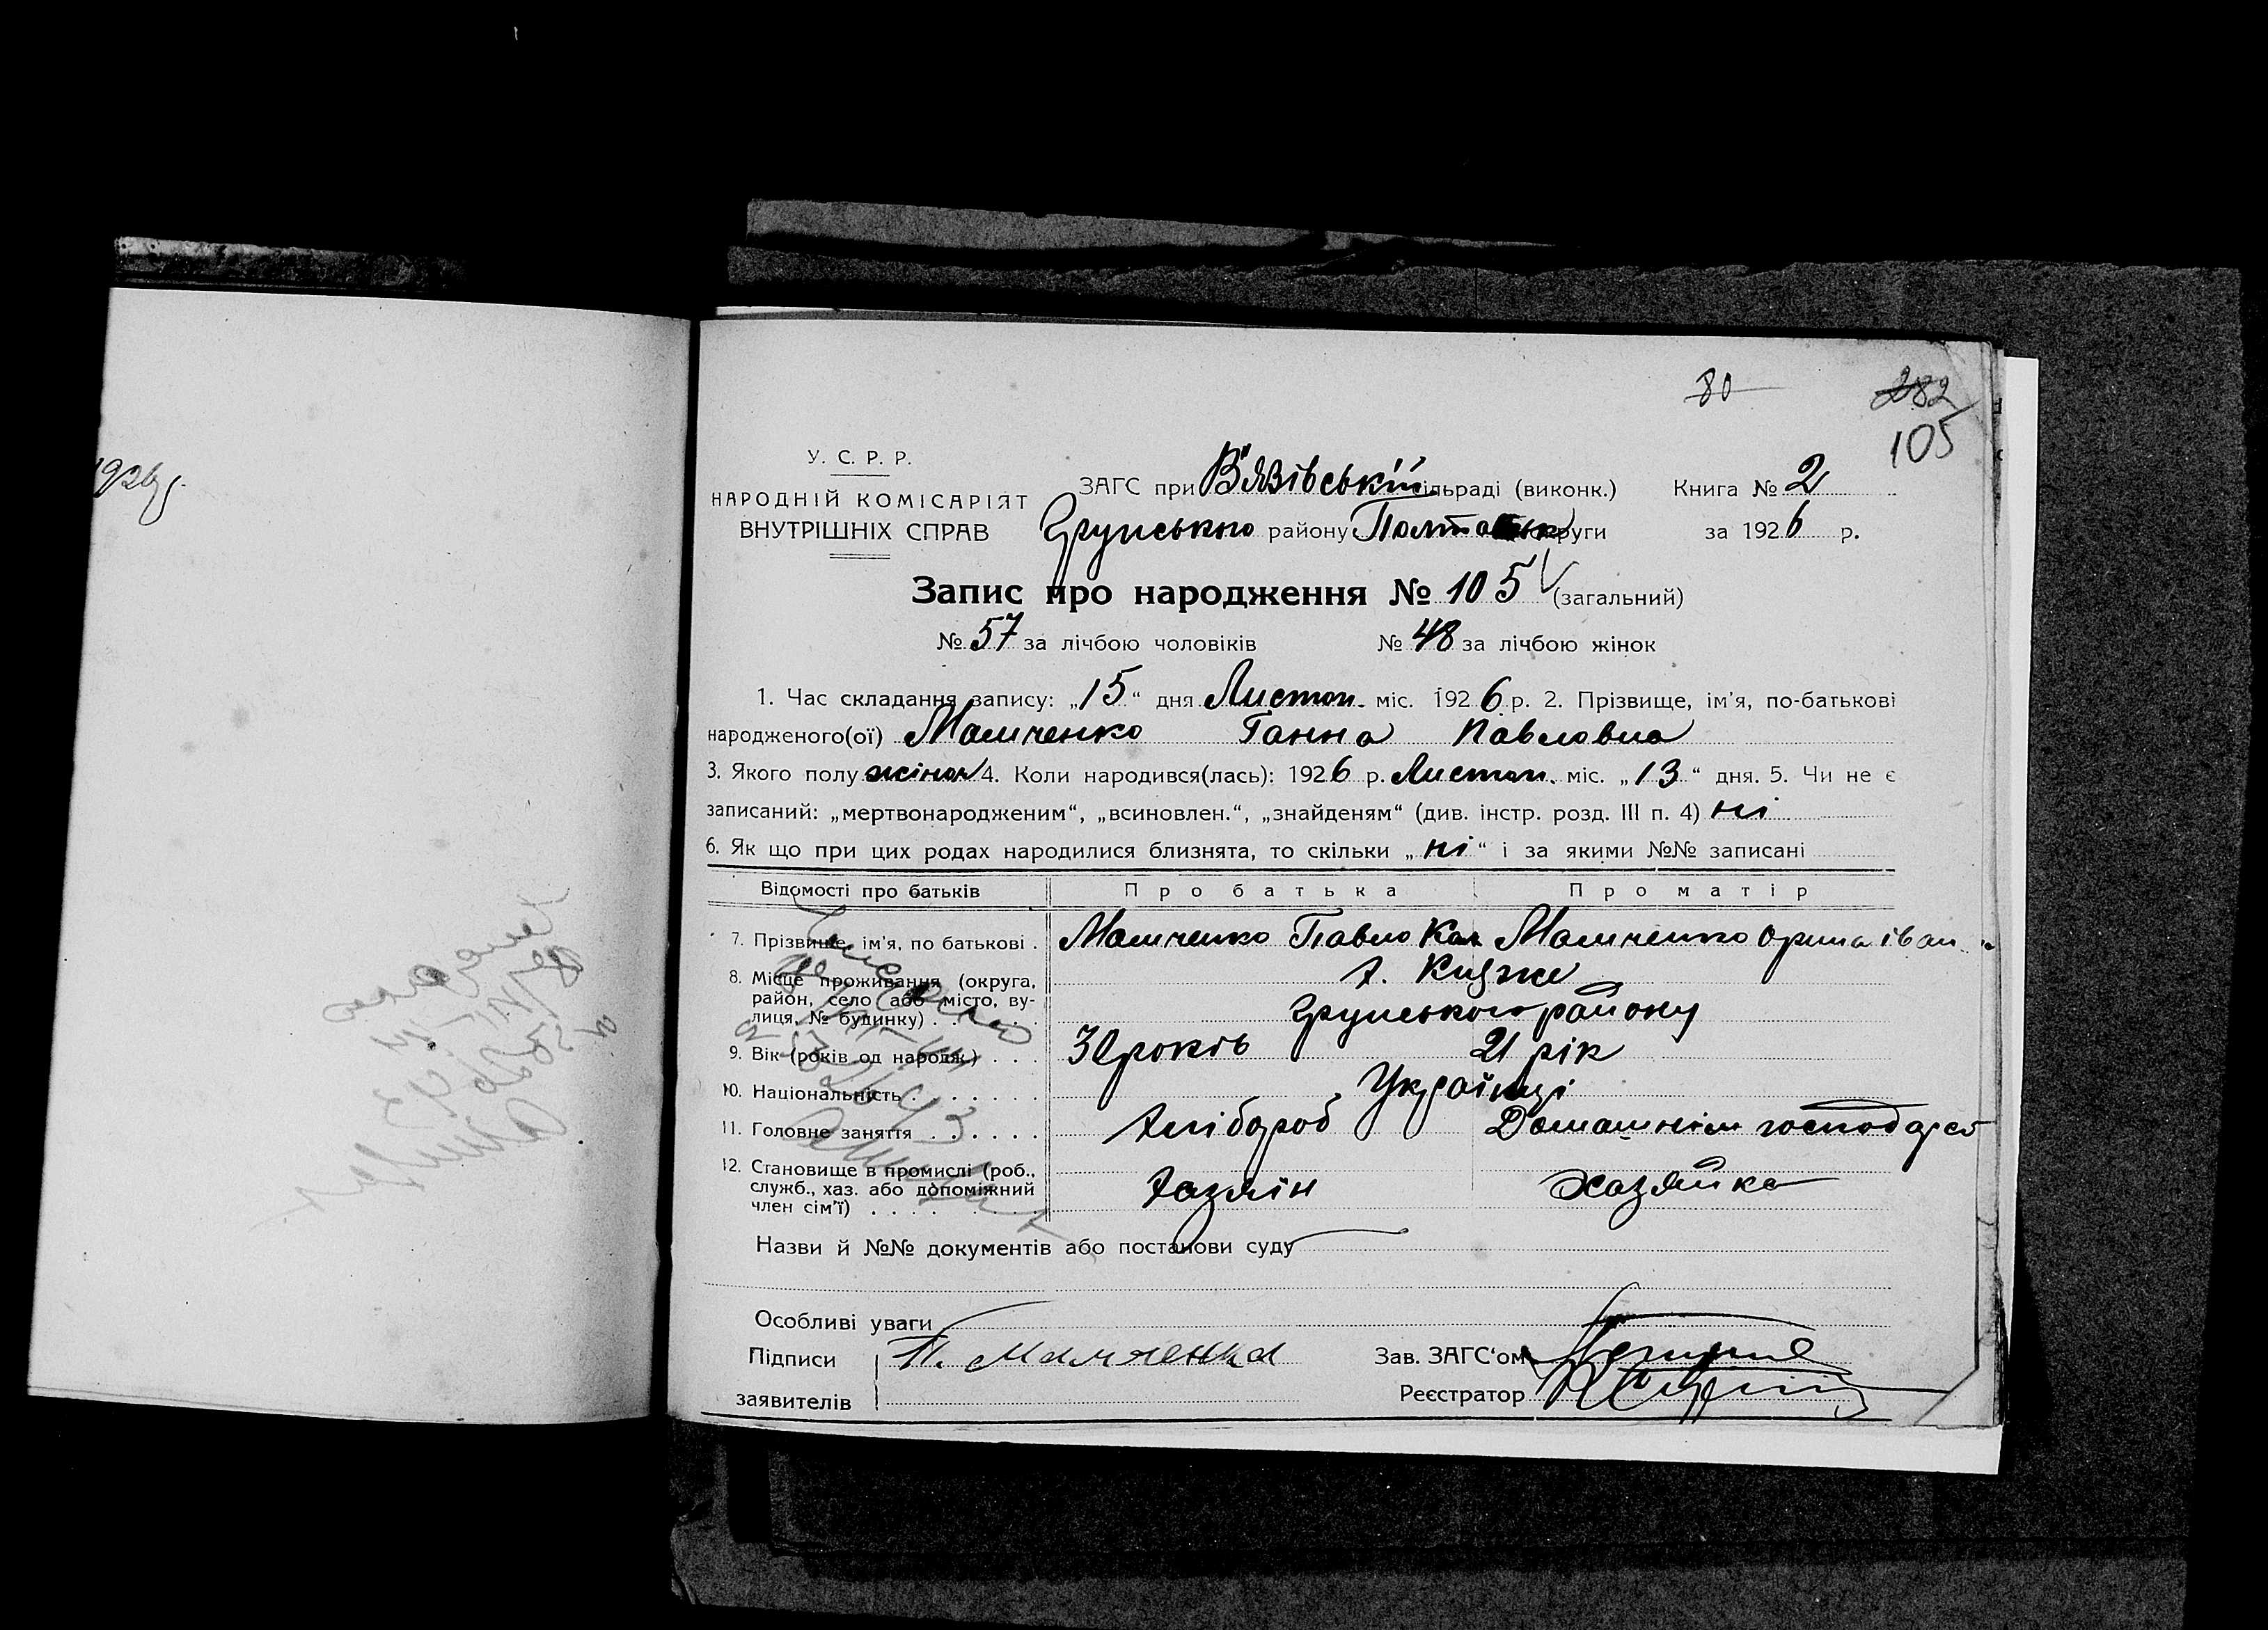 80
282
105
У. С. Р. Р.
НАРОДНІЙ КОМІСАРІЯТ
ВНУТРІШНІХ СПРАВ
ЗАГС при В'язівській сільраді (виконк.)
Книга № 2
Грунського району Полтавськ округи
за 1926 р.
Запис про народження № 105 (загальний)
№ 57 за лічбою чоловіків № 48 за лічбою жінок
1. Час складання запису: „15“ дня Листоп. міс. 1926 р. 2. Прізвище, ім'я, по-батькові
народженого(ої) Мамченко Ганна Павловна
3. Якого полу жіноч 4. Коли народився(лась): 1926 р. Листоп. міс. „13“ дня. 5. Чи не є
записаний: „мертвонародженим“, „всиновлен.“, „знайденям“ (див. інстр. розд. III п. 4) ні
6. Як що при цих родах народилися близнята, то скільки „ні“ і за якими №№ записані
Відомості про батьків Про батька Про матір
7. Прізвище, ім'я, по батькові . Мамченко Павло Мамченко Орина Іван
8. Місце проживання (округа, район, село або місто, вулиця, № будинку) . . х.
Грунського району
9. Вік (років од народж.) . . . 30 років 21 рік
10. Національність . . . . . . . Українці
11. Головне заняття . . . . . . Хлібороб Домашнім господарст
12. Становище в промислі (роб., служб., хаз. або допоміжний член сім'ї) . . . . Хазяїн Хазяйка
Назви й №№ документів або постанови суду
Особливі уваги
Підписи П. Мамченко Зав. ЗАГС'ом
заявителів Реєстратор